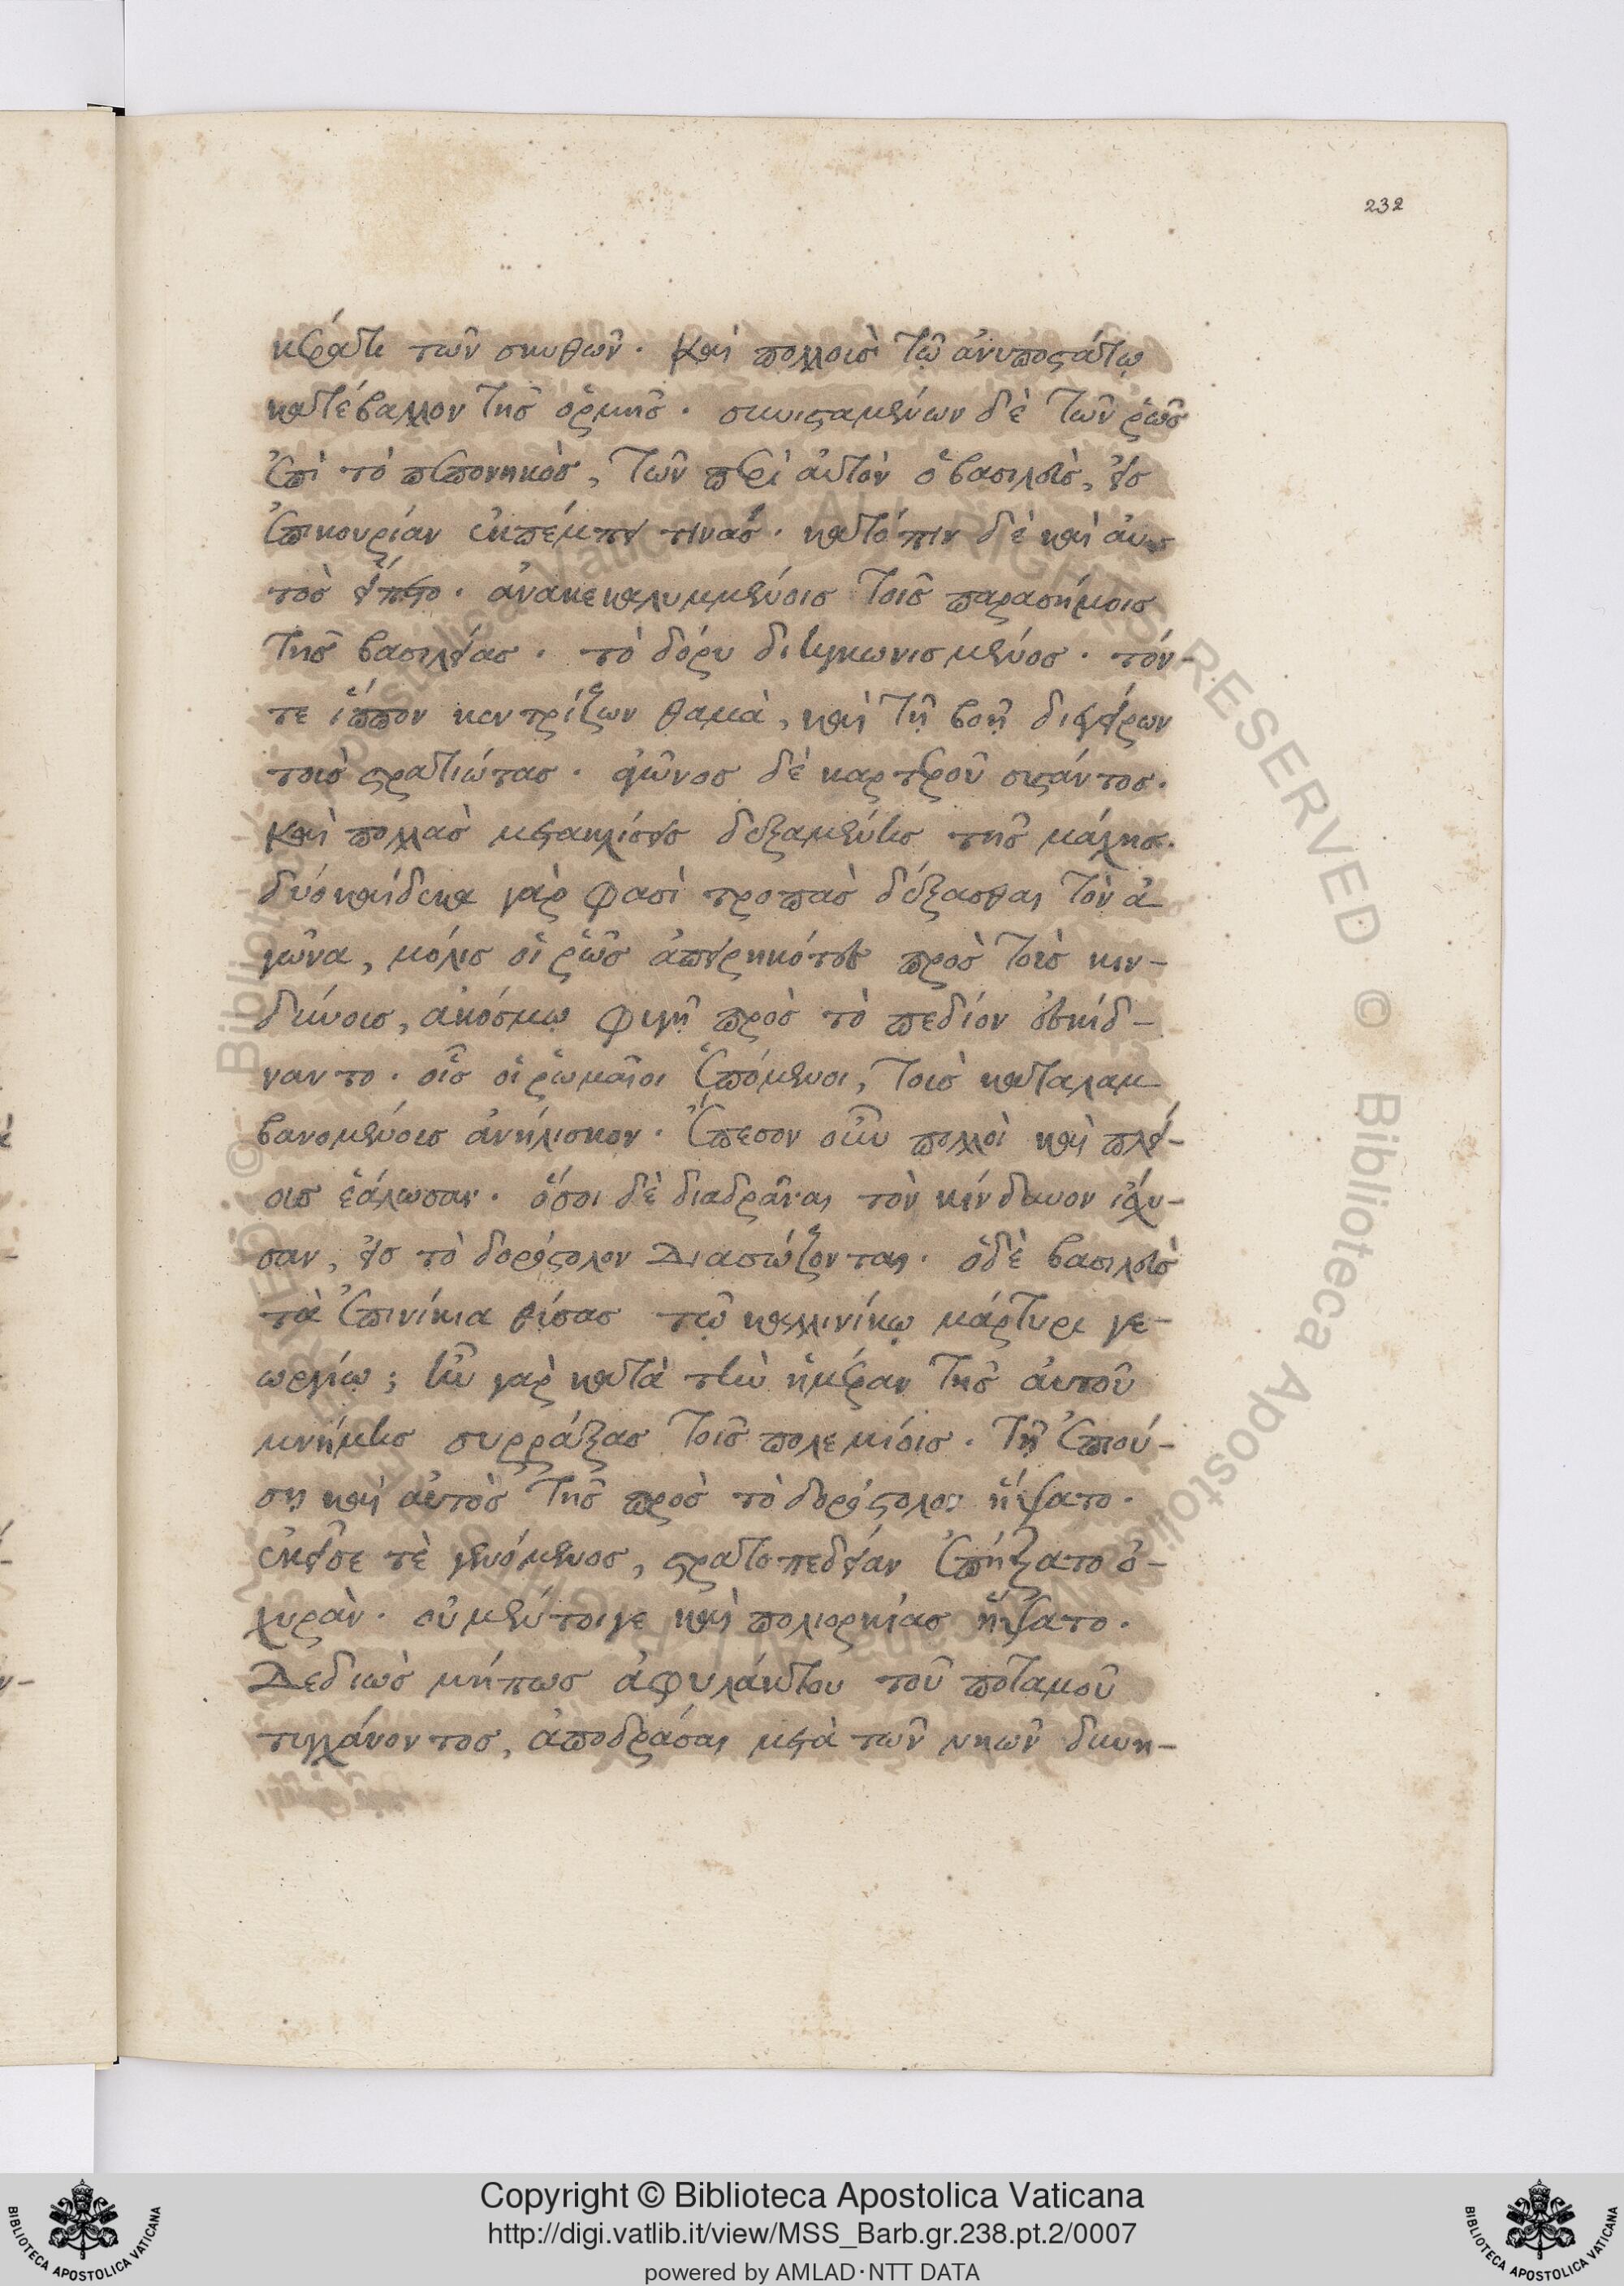 232
κέρατι τῶν σκυθῶν. Καὶ πολλοὺς τῷ ἀνυποστάτῳ
κατέβαλλον τῆς ὁρμῆς. συνισταμένων δὲ τῶν ῥῶς
ἐπὶ τὸ πεπονηκὸς, τῶν περὶ αὐτὸν ὁ βασιλεὺς, εἰς
ἐπικουρίαν ἐκπέμπει τινάς. κατόπιν δὲ καὶ αὐ
τὸς εἵπετο. ἀνακεκαλυμμένοις τοῖς παρασήμοις
τῆς βασιλείας. τὸ δόρυ διηγκωνισμένος. τόν-
τε ἵππον κεντρίζων θαμὰ, καὶ τῇ βοῇ διεγείρων
τοὺς στρατιώτας. ἀγῶνος δὲ καρτεροῦ συστάντος.
Καὶ πολλὰς μετακλίσεις δεξαμένης τῆς μάχης.
δυόκαίδεκα γὰρ φασὶ τροπὰς δέξασθαι τὸν ἀ
γῶνα, μόλις οἱ ῥῶς ἀπειρηκότες πρὸς τοὺς κιν-
δύνους, ἀκόσμῳ φυγῇ πρὸς τὸ πεδίον ἐσκίδ-
ναντο. οἷς οἱ ῥωμαῖοι ἑπόμενοι, τοὺς καταλαμ
βανομένους ἀνήλισκον. ἔπεσον οὖν πολλοὶ καὶ πλεί-
ους ἑάλωσαν. ὅσοι δὲ διαδρᾶναι τὸν κίνδυνον ἴσχυ-
σαν, εἰς τὸ δορύστολον Διασώζονται. ὁδὲ βασιλεὺς
τὰ ἐπινίκια θύσας τῷ καλλινίκῳ μάρτυρι γε-
ωργίῳ; ἦν γὰρ κατὰ τὴν ἡμέραν τῆς αὐτοῦ
μνήμης συρράξας τοῖς πολεμίοις. τῇ ἐπιού-
σῃ καὶ αὐτὸς τῆς πρὸς τὸ δορύστολον ἥψατο.
ἐκεῖσε τὲ γενόμενος, στρατοπεδείαν ἐπήξατο ὀ-
χυρὰν. οὐ μέντοιγε καὶ πολιορκίας ἥψατο.
Δεδιὼς μήπως ἀφυλάκτου τοῦ ποταμοῦ
τυγχάνοντος, ἀποδράσαι μετὰ τῶν νηῶν δυνη-